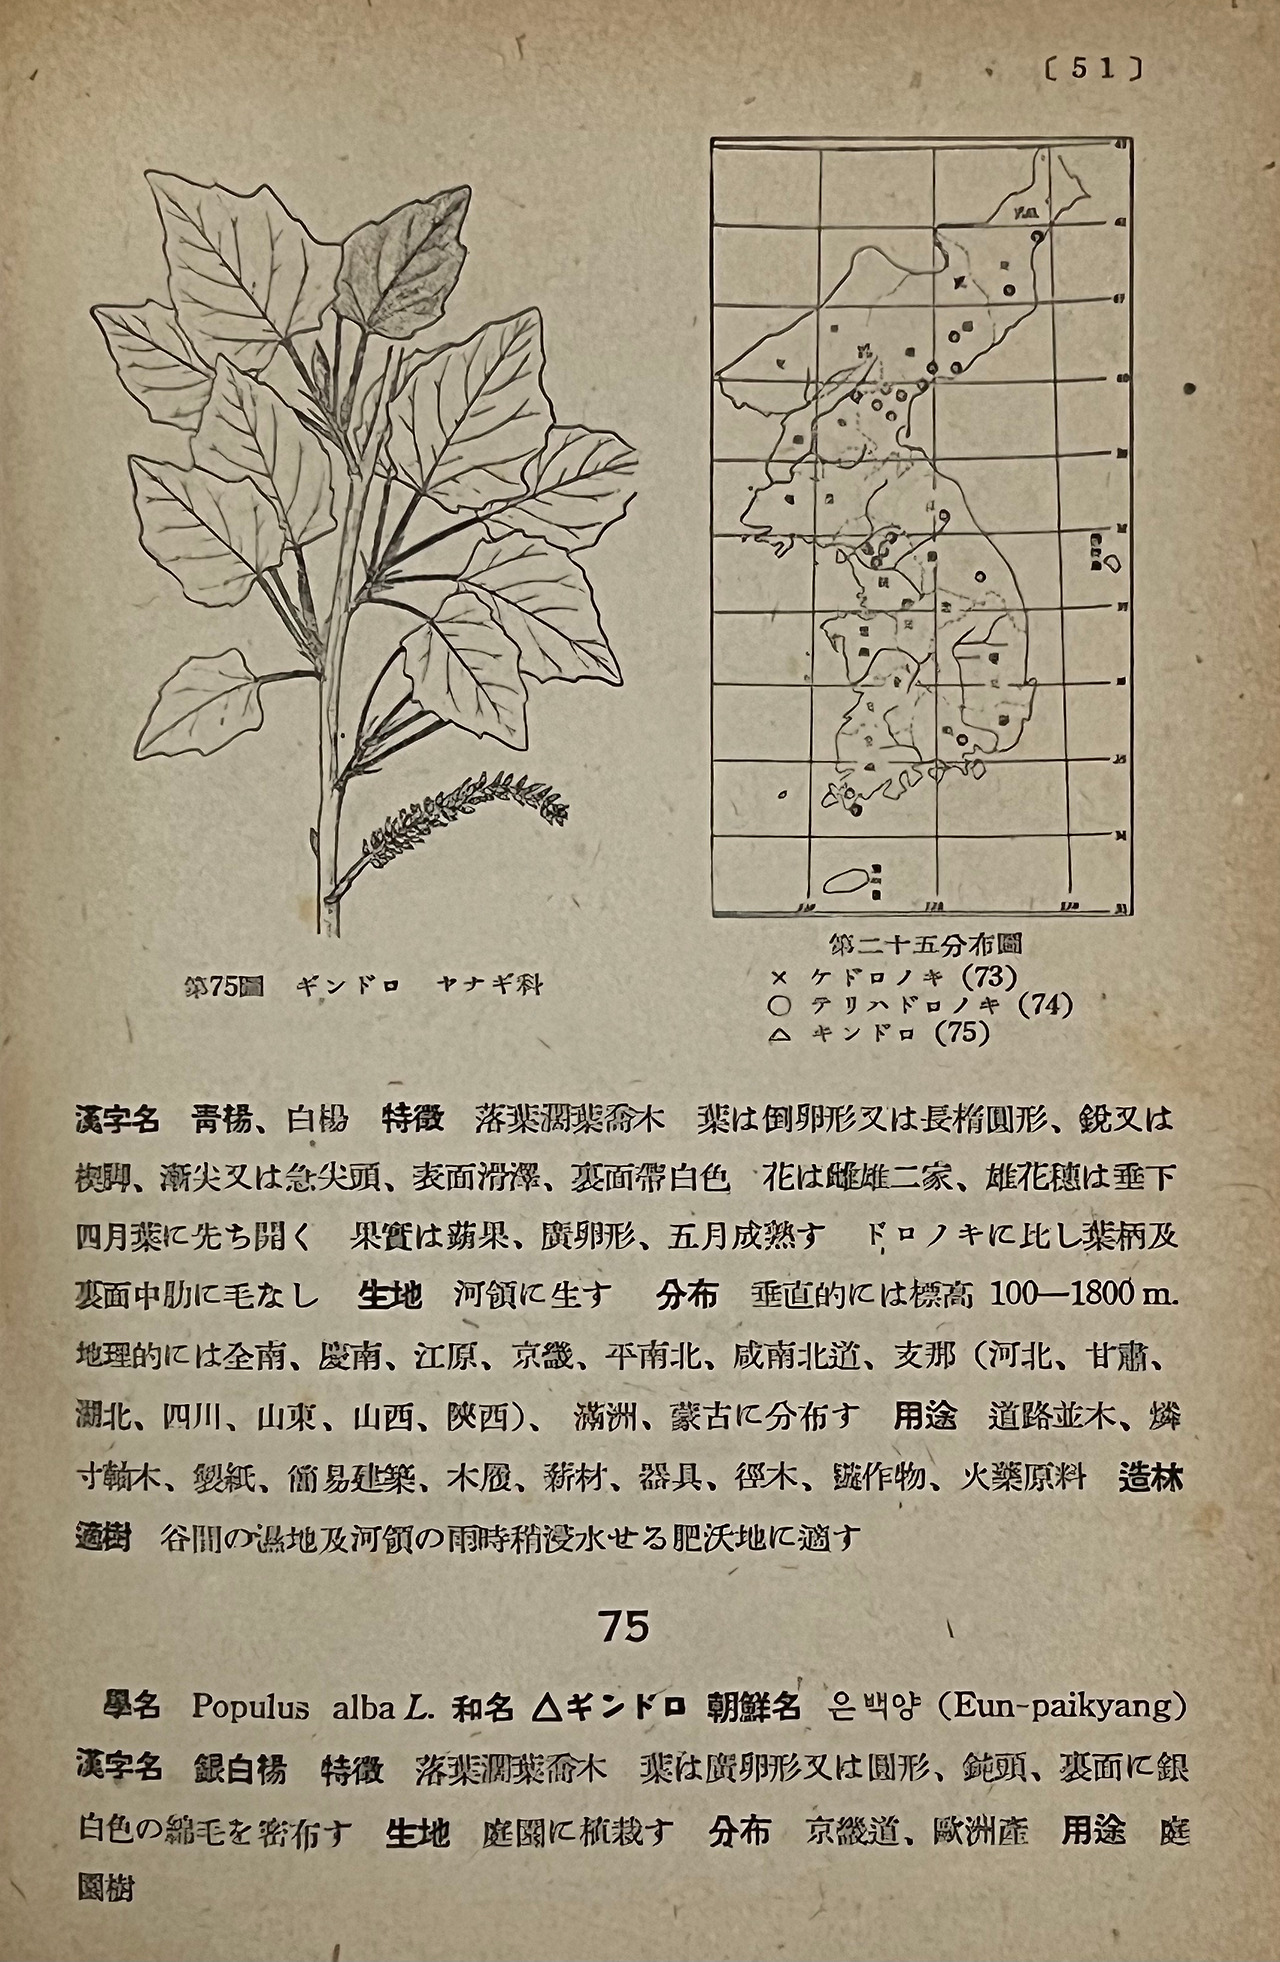 〔51〕
第75圖 ギンドロ ヤナギ科
第二十五分布圖
× ケドロノキ (73)
○ テリハドロノキ (74)
△ キンドロ (75)
漢字名 靑楊、白楊 特徵 落葉濶葉喬木 葉は倒卵形又は長楕圓形、銳又は
楔脚、漸尖又は急尖頭、表面滑澤、裏面帶白色 花は雌雄二家、雄花穗は垂下
四月葉に先ち開く 果實は蒴果、廣卵形、五月成熟す ドロノキに比し葉柄及
裏面中肋に毛なし 生地 河領に生す 分布 垂直的には標高 100—1800 m.
地理的には全南、慶南、江原、京畿、平南北、咸南北道、支那（河北、甘肅、
湖北、四川、山東、山西、陝西）、滿洲、蒙古に分布す 用途 道路並木、燐
寸軸木、製紙、簡易建築、木履、薪材、器具、徑木、作物、火藥原料 造林
適樹 谷間の濕地及河領の雨時稍浸水せる肥沃地に適す
75
學名 Populus alba L. 和名 △ギンドロ 朝鮮名 은백양 (Eun-paikyang)
漢字名 銀白楊 特徵 落葉濶葉喬木 葉は廣卵形又は圓形、鈍頭、裏面に銀
白色の綿毛を密布す 生地 庭園に植栽す 分布 京畿道、歐洲產 用途 庭
園樹